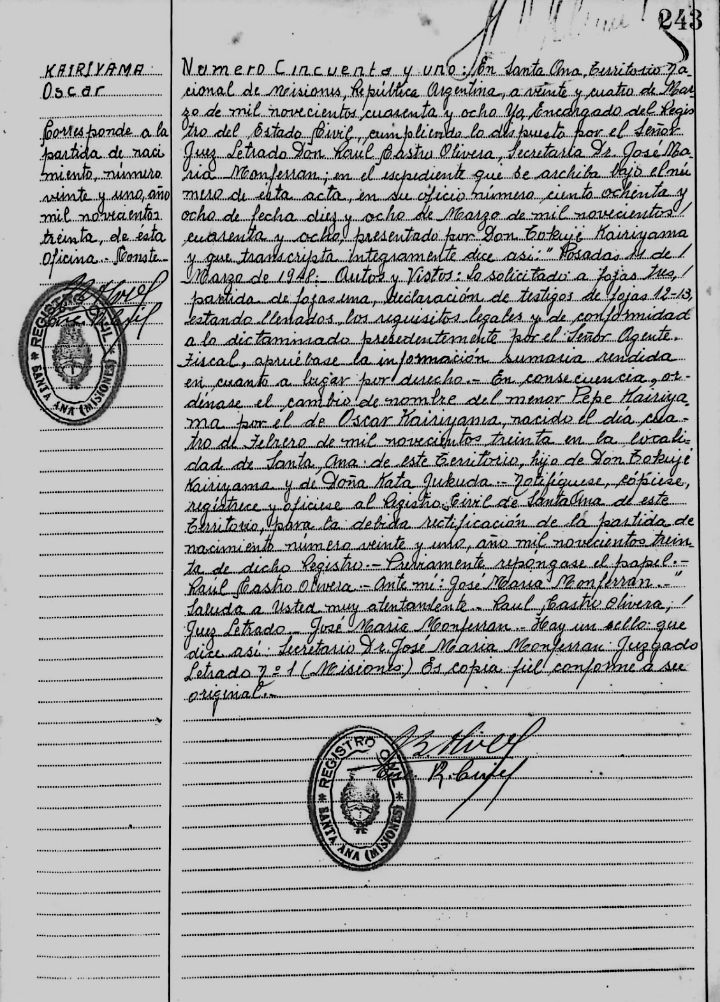 243
KAIRIYAMA
Oscar
Corresponde a la
partida de naci
miento, número
veinte y uno, año
mil novecientos
treinta, de ésta
Oficina.- Conste-
REGISTRO CIVIL
* SANTA ANA (MISIONES) *
Numero Cincuenta y uno: En Santa Ana, Territorio Na-
cional de Misiones, República Argentina, a veinte y cuatro de Mar
zo de mil novecientos, cuarenta y ocho Yo, Encargado del Regis
tro del Estado Civil, cumpliendo lo dispuesto por el Señor
Juez Letrado Don Raúl Castro Olivera, Secretaría Dr. José Ma-
ria Monferran; en el expediente que se archiba bajo el nú
mero de esta acta, en su oficio número ciento ochenta y
ocho de fecha diez y ocho de Marzo de mil novecientos/
cuarenta y ocho, presentado por Don Tokuji Kairiyama
y que transcripta integramente dice así: "Posadas, 11 de/
Marzo de 1948: Autos y Vistos: Lo solicitado a fojas tres,/
partida de fojas una, declaración de testigos de fojas 12-13,
estando llenados los requisitos legales y de conformidad
a lo dictaminado precedentemente por el Señor Agente.
Fiscal, apruébase la información sumaria rendida
en cuanto a lugar por derecho.- En consecuencia, or-
dénase el cambio de nombre del menor Pepe Kairiya
ma por el de Oscar Kairiyama, nacido el dia cua
tro de Febrero de mil novecientos treinta en la locali-
dad de Santa Ana de este Territorio, hijo de Don Tokuji
Kairiyama y de Doña Kata Jukuda.- Notifiquese, cópiese,
regístrece y ofíciese al Registro Civil de Santa Ana de este
Territorio, para la debida rectificación de la partida de
nacimiento número veinte y uno, año mil novecientos trein
ta de dicho Registro.- Previamente repóngase el papel.-
Raúl Castro Olivera.- Ante mi: José Maria Monferran.-"
Saluda a Usted muy atentamente.- Raul Castro Olivera,/
Juez Letrado.- José Maria Monferran.- Hay un sello que
dice así: Secretario Dr. José Maria Monferran. Juzgado
Letrado nº 1 (Misiones) Es copia fiel conforme a su
original.-
REGISTRO CIVIL
* SANTA ANA (MISIONES) *